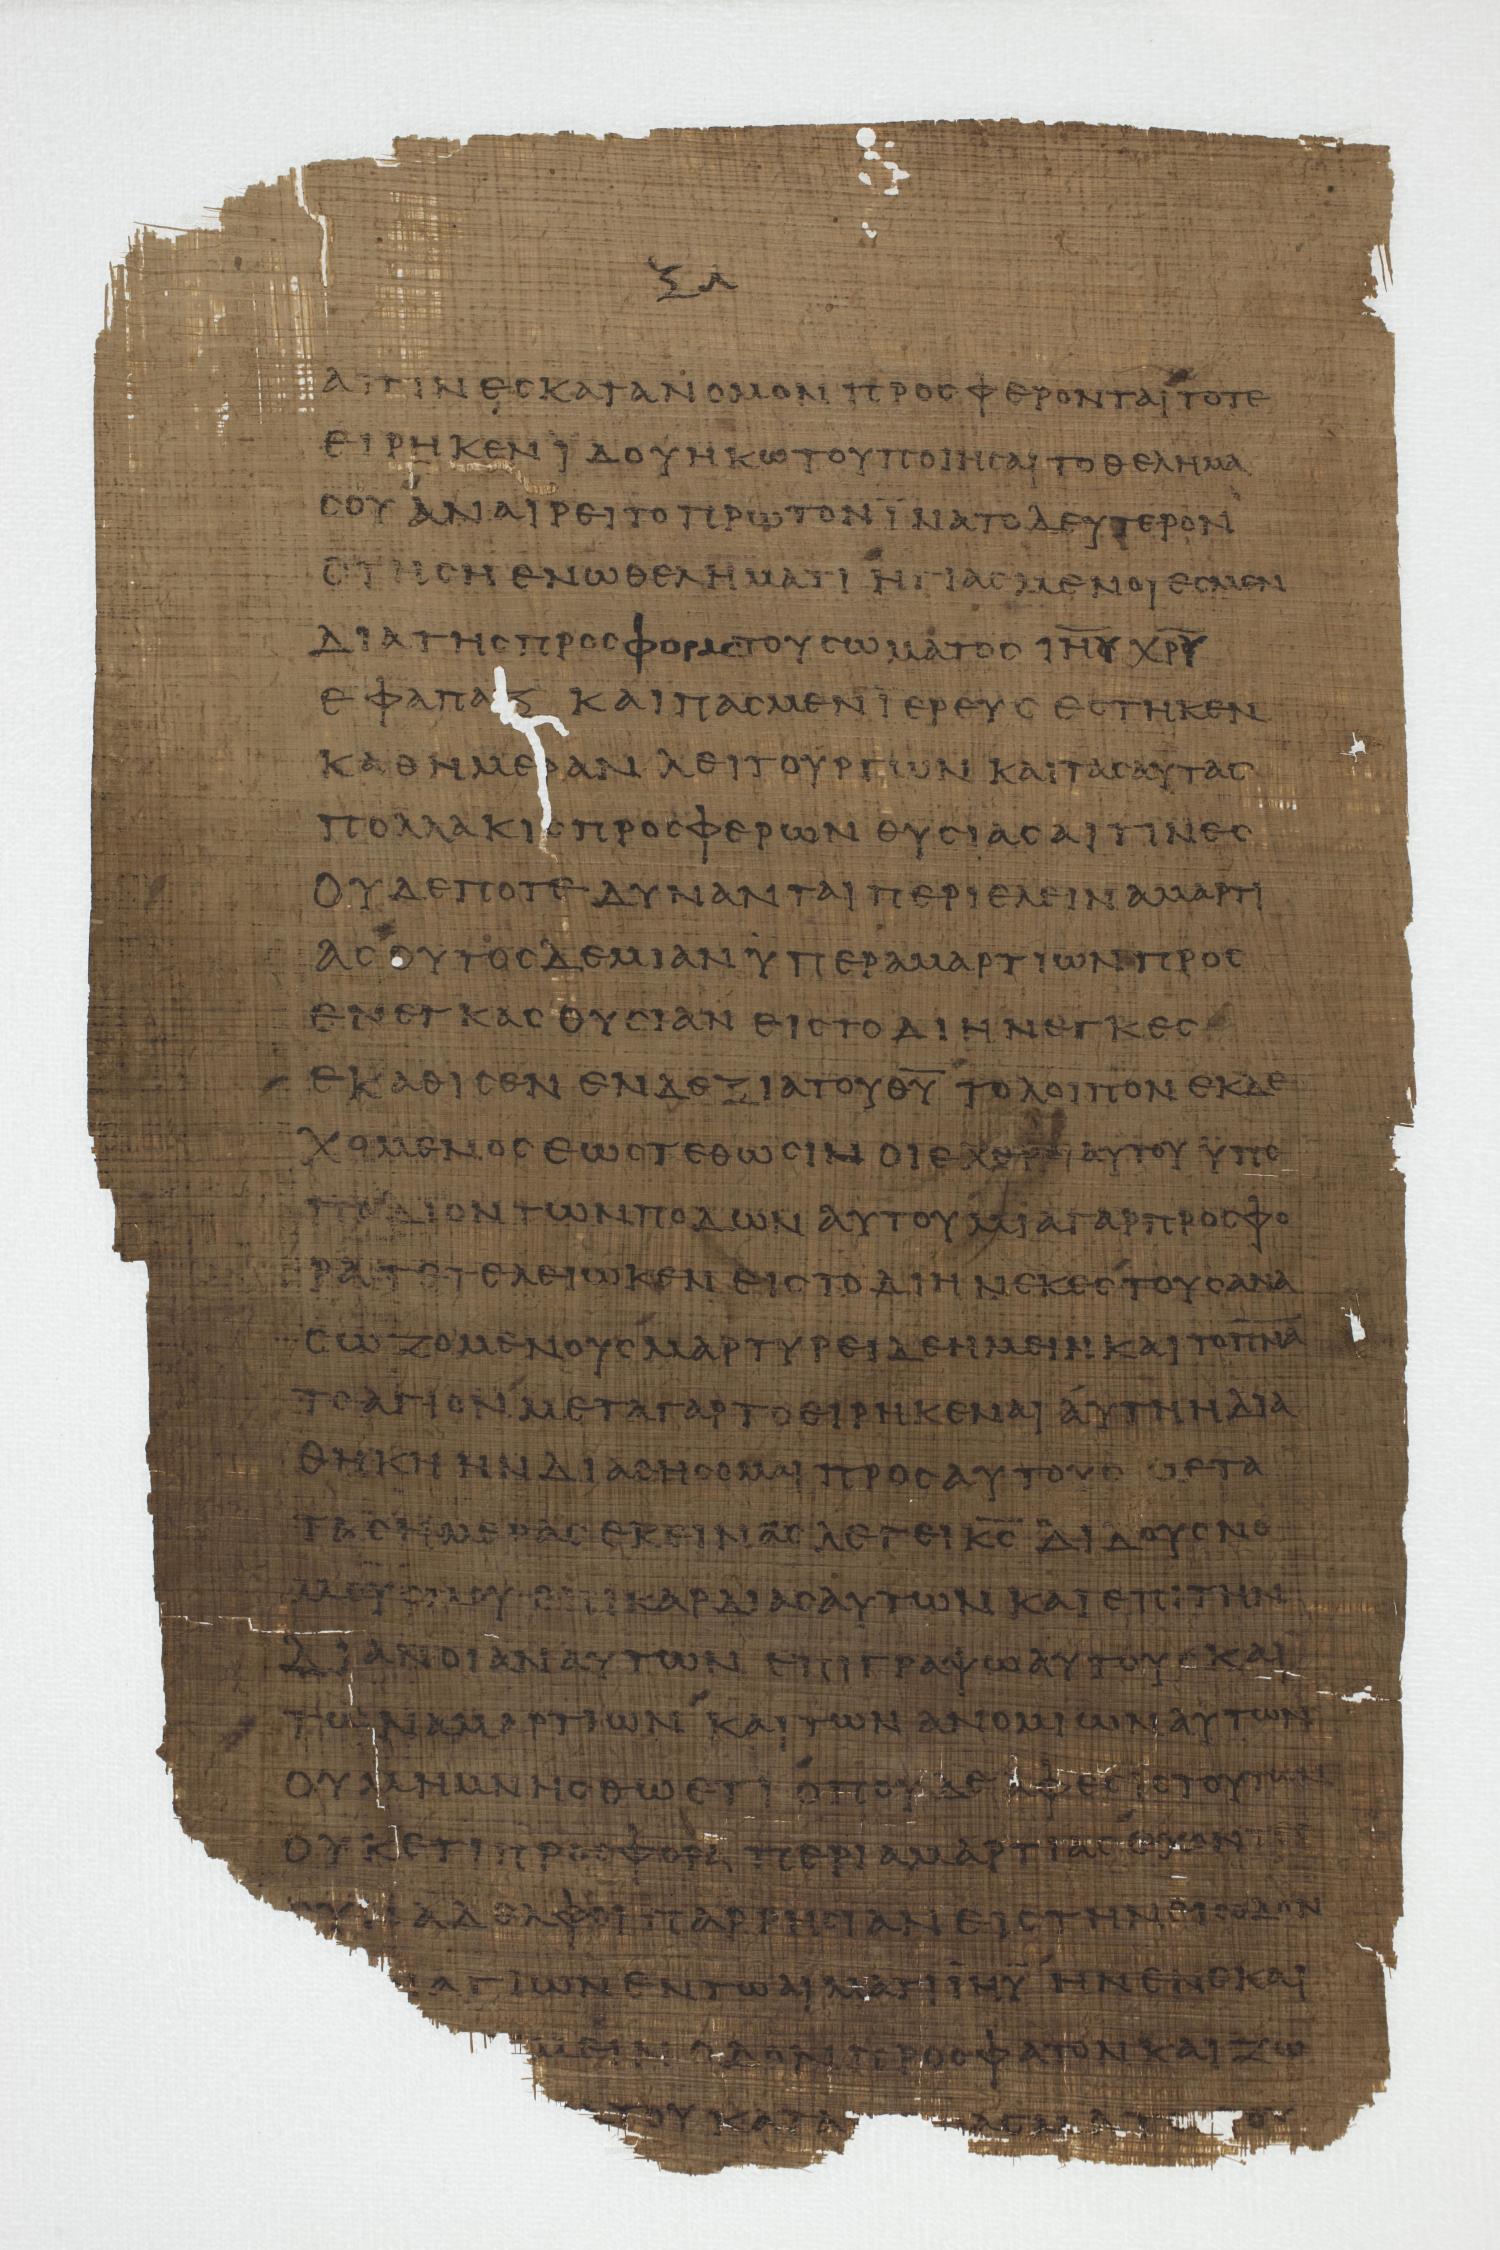 ξα
αιτινεςκατανομονπροσφερονταιτοτε
ειρηκενϊδουηκωτουποιησαιτοθελημα
σουαναιρειτοπρωτονϊνατοδευτερον
στησηενωθεληματιηγιασμενοιεσμεν
διατηςπροσφοραςτουσωματοςιη̅υ̅χρ̅υ̅
εφαπαξκαιπαςμενϊερευςεστηκεν
καθημερανλειτουργωνκαιταςαυτας
πολλακιςπροσφερωνθυσιαςαιτινες
ουδεποτεδυνανταιπεριελειναμαρτι
αςουτοςδεμιανϋπεραμαρτιωνπροσ
ενεγκαςθυσιανειςτοδιηνεγκες
εκαθισενενδεξιατουθ̅υ̅τολοιπονεκδε
χομενοςεωςτεθωσινοιεχθροιαυτουϋπο
ποδιοντωνποδωναυτουμιαγαρπροσφο
ρατετελειωκενειςτοδιηνεκεςτουςανα
σωζομενουςμαρτυρειδεημεινκαιτοπ̅ν̅α̅
τοαγιονμεταγαρτοειρηκεναιαυτηηδια
θηκηηνδιαθησομαιπροςαυτουςμετα
ταςημεραςεκειναςλεγεικ̅ς̅διδουςνο
μουςμουεπικαρδιαςαυτωνκαιεπιτην
διανοιαναυτωνεπιγραψωαυτουςκαι
τωναμαρτιωνκαιτωνανομιωναυτων
ουμημνησθωετιοπουδεαφεσιςτουτων
ουκετιπροσφοραπεριαμαρτιαςεχοντες
ουναδελφοιπαρρησιανειςτηνεισοδον
αγιωνεντωαιματιιη̅υ̅ηνενεκαι
μεινοδονπροσφατονκαιζω
τουκατα